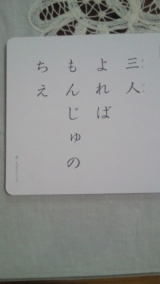 三人
よれば
もんじゅの
ちえ